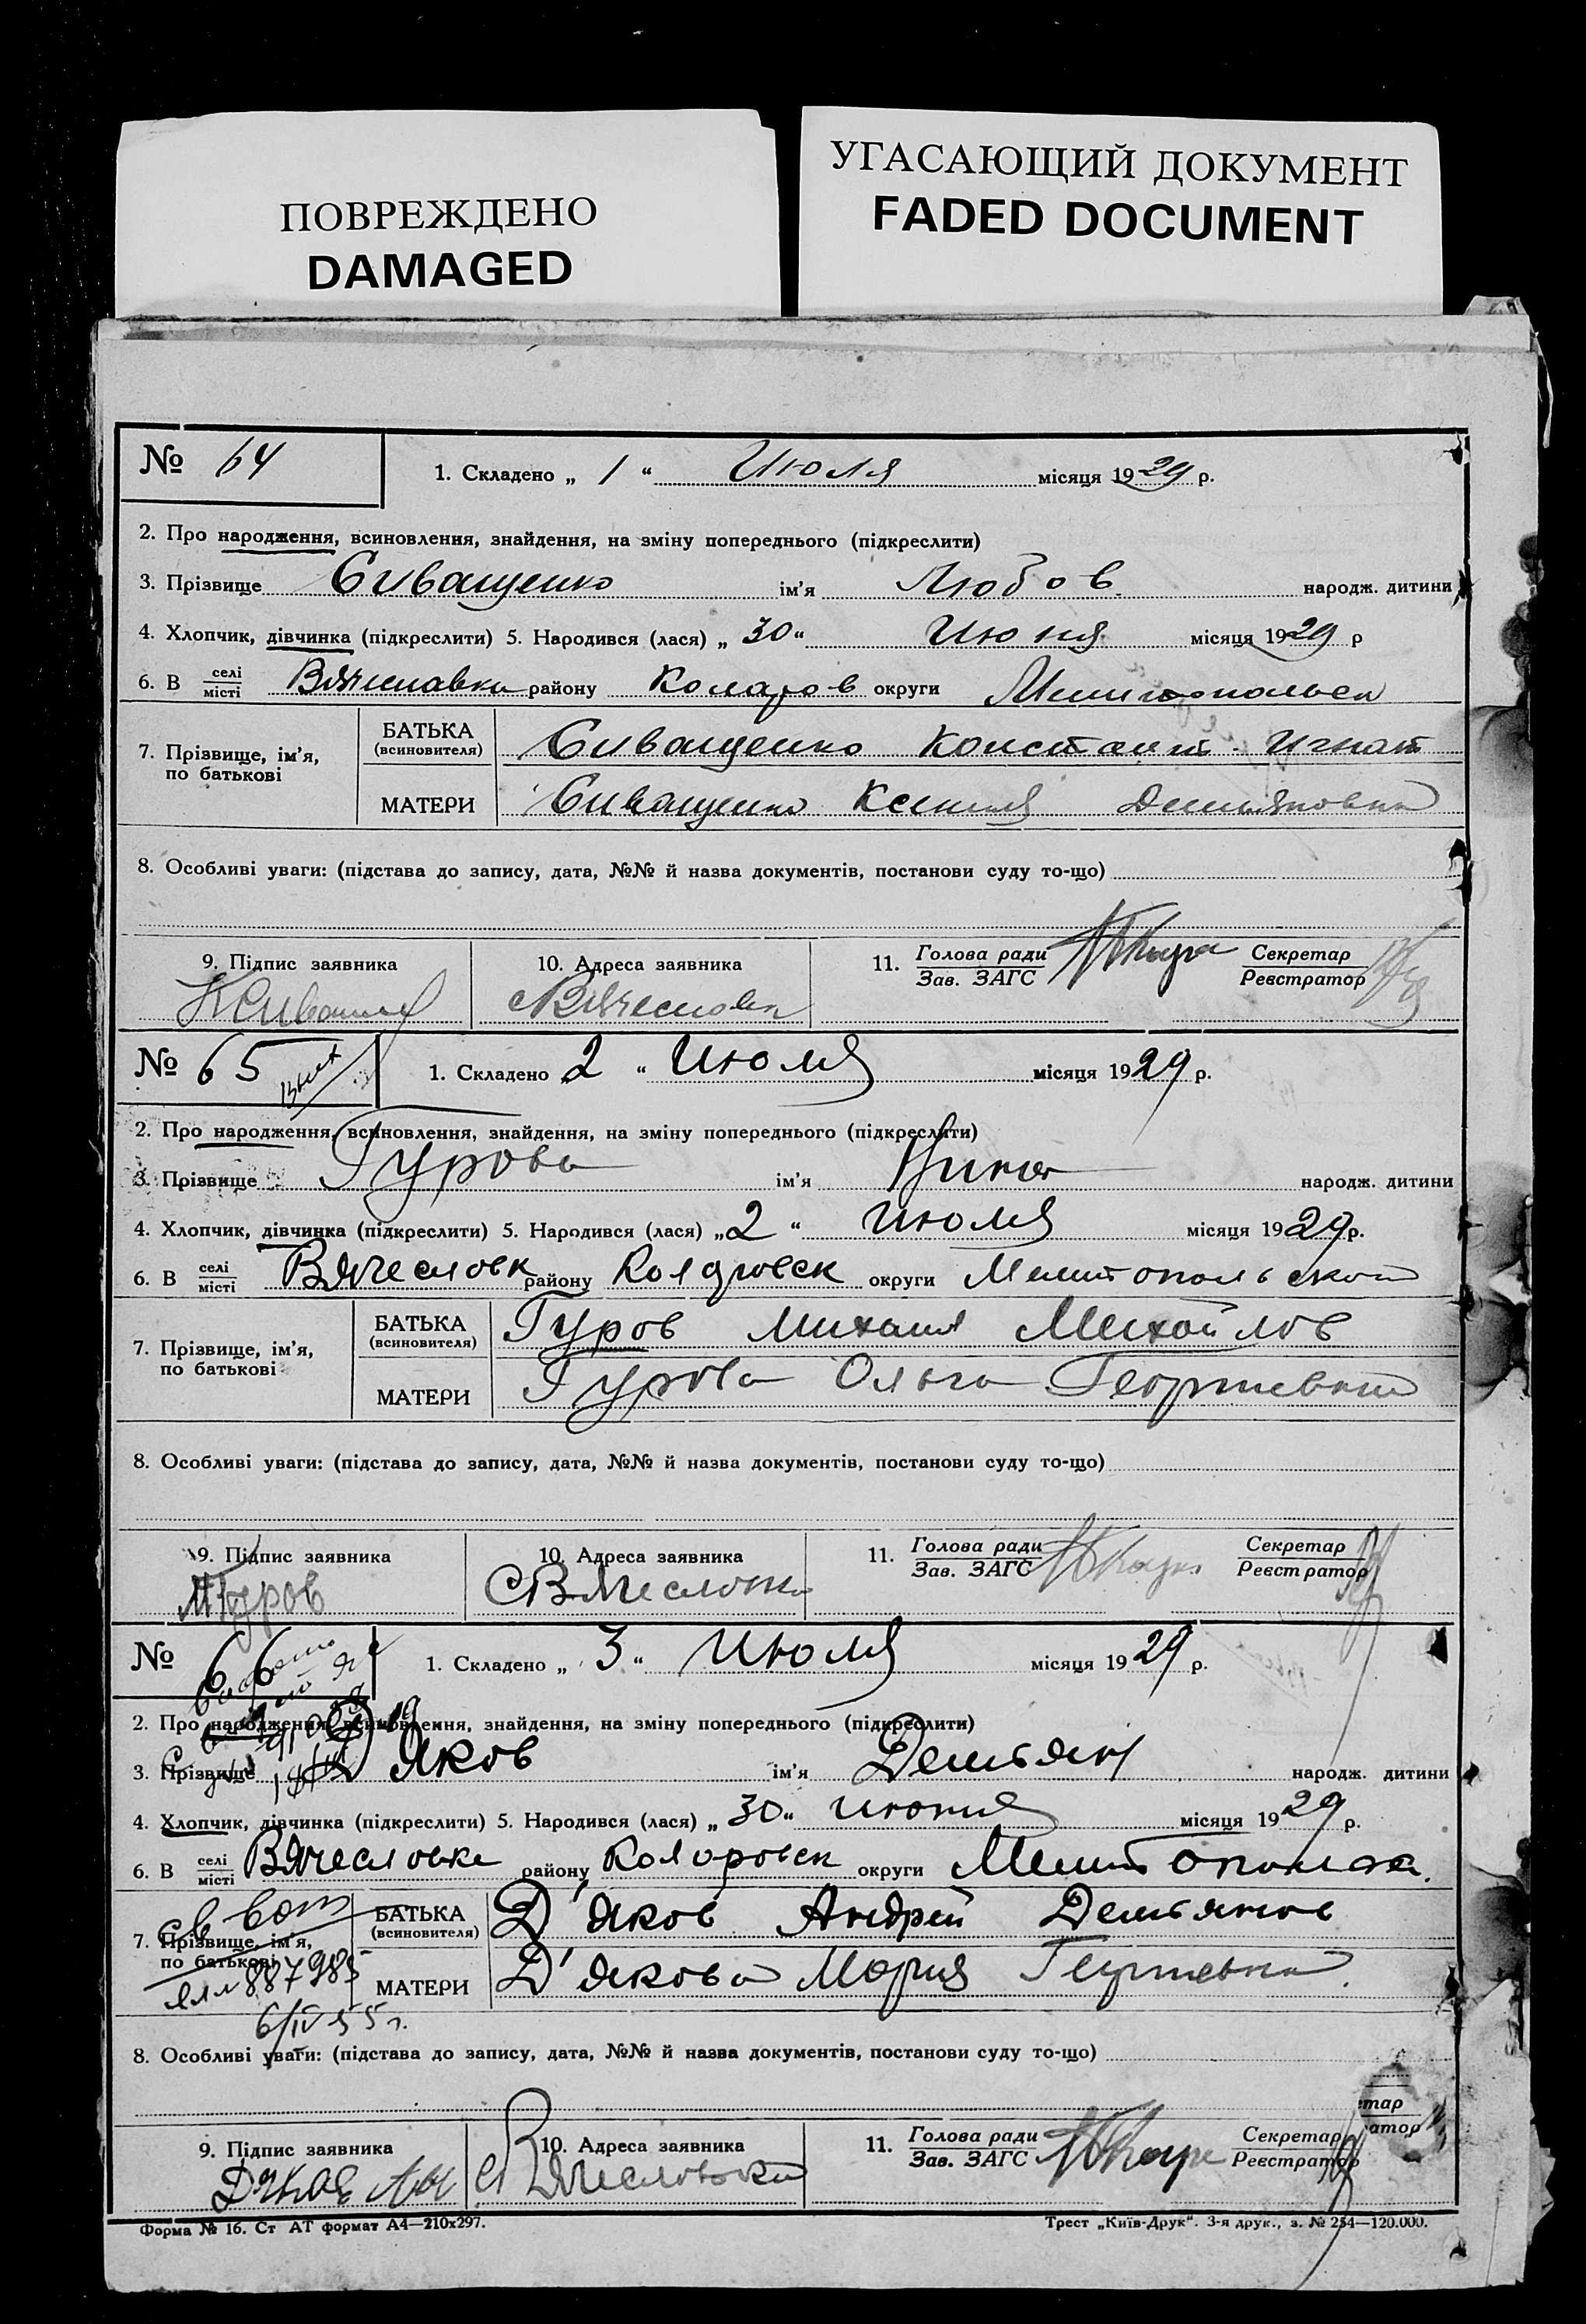 ПОВРЕЖДЕНО
DAMAGED
УГАСАЮЩИЙ ДОКУМЕНТ
FADED DOCUMENT
№ 64
1. Складено „ 1 “ Июля місяця 1929 р.
2. Про народження, всиновлення, знайдення, на зміну попереднього (підкреслити)
3. Прізвище Сиващенко ім'я Любов народж. дитини
4. Хлопчик, дівчинка (підкреслити) 5. Народився (лася) „ 30 “ Июня місяця 1929 р
6. В селі місті Вячеславка району Коларов округи Мелитопольск
7. Прізвище, ім'я, по батькові
БАТЬКА (всиновителя) Сиващенко Констант Игнат
МАТЕРИ Сиващенко Ксения Демьяновна
8. Особливі уваги: (підстава до запису, дата, №№ й назва документів, постанови суду то-що)
9. Підпис заявника
10. Адреса заявника
11. Голова ради Зав. ЗАГС Секретар Реєстратор
№ 65
1. Складено 2 “ Июля місяця 1929 р.
2. Про народження, всиновлення, знайдення, на зміну попереднього (підкреслити)
3. Прізвище Гурова ім'я Нина народж. дитини
4. Хлопчик, дівчинка (підкреслити) 5. Народився (лася) „ 2 “ Июля місяця 1929 р.
6. В селі місті Вячесловк району Коларовск округи Мелитопольской
7. Прізвище, ім'я, по батькові
БАТЬКА (всиновителя) Гуров Михаил Михайлов
МАТЕРИ Гурова Ольга Георгиевна
8. Особливі уваги: (підстава до запису, дата, №№ й назва документів, постанови суду то-що)
9. Підпис заявника МГуров
10. Адреса заявника С Вячесловка
11. Голова ради Зав. ЗАГС Секретар Реєстратор
№ 66
1. Складено „ 3 “ Июля місяця 1929 р.
2. Про народження, всиновлення, знайдення, на зміну попереднього (підкреслити)
3. Прізвище Д'яков ім'я Демьян народж. дитини
4. Хлопчик, дівчинка (підкреслити) 5. Народився (лася) „ 30 “ Июня місяця 1929 р.
6. В селі місті Вячесловка району Коларовск округи Мелитопольск
7. Прізвище, ім'я, по батькові
БАТЬКА (всиновителя) Д'яков Андрей Демьянов
МАТЕРИ Д'якова Мария Георгиевна
887985
6/IV 55 г.
8. Особливі уваги: (підстава до запису, дата, №№ й назва документів, постанови суду то-що)
9. Підпис заявника
10. Адреса заявника С Вячесловка
11. Голова ради Зав. ЗАГС Секретар Реєстратор
Форма № 16. Ст АТ формат А4—210х297.
Трест „Київ-Друк“. 3-я друк., з. № 254—120.000.